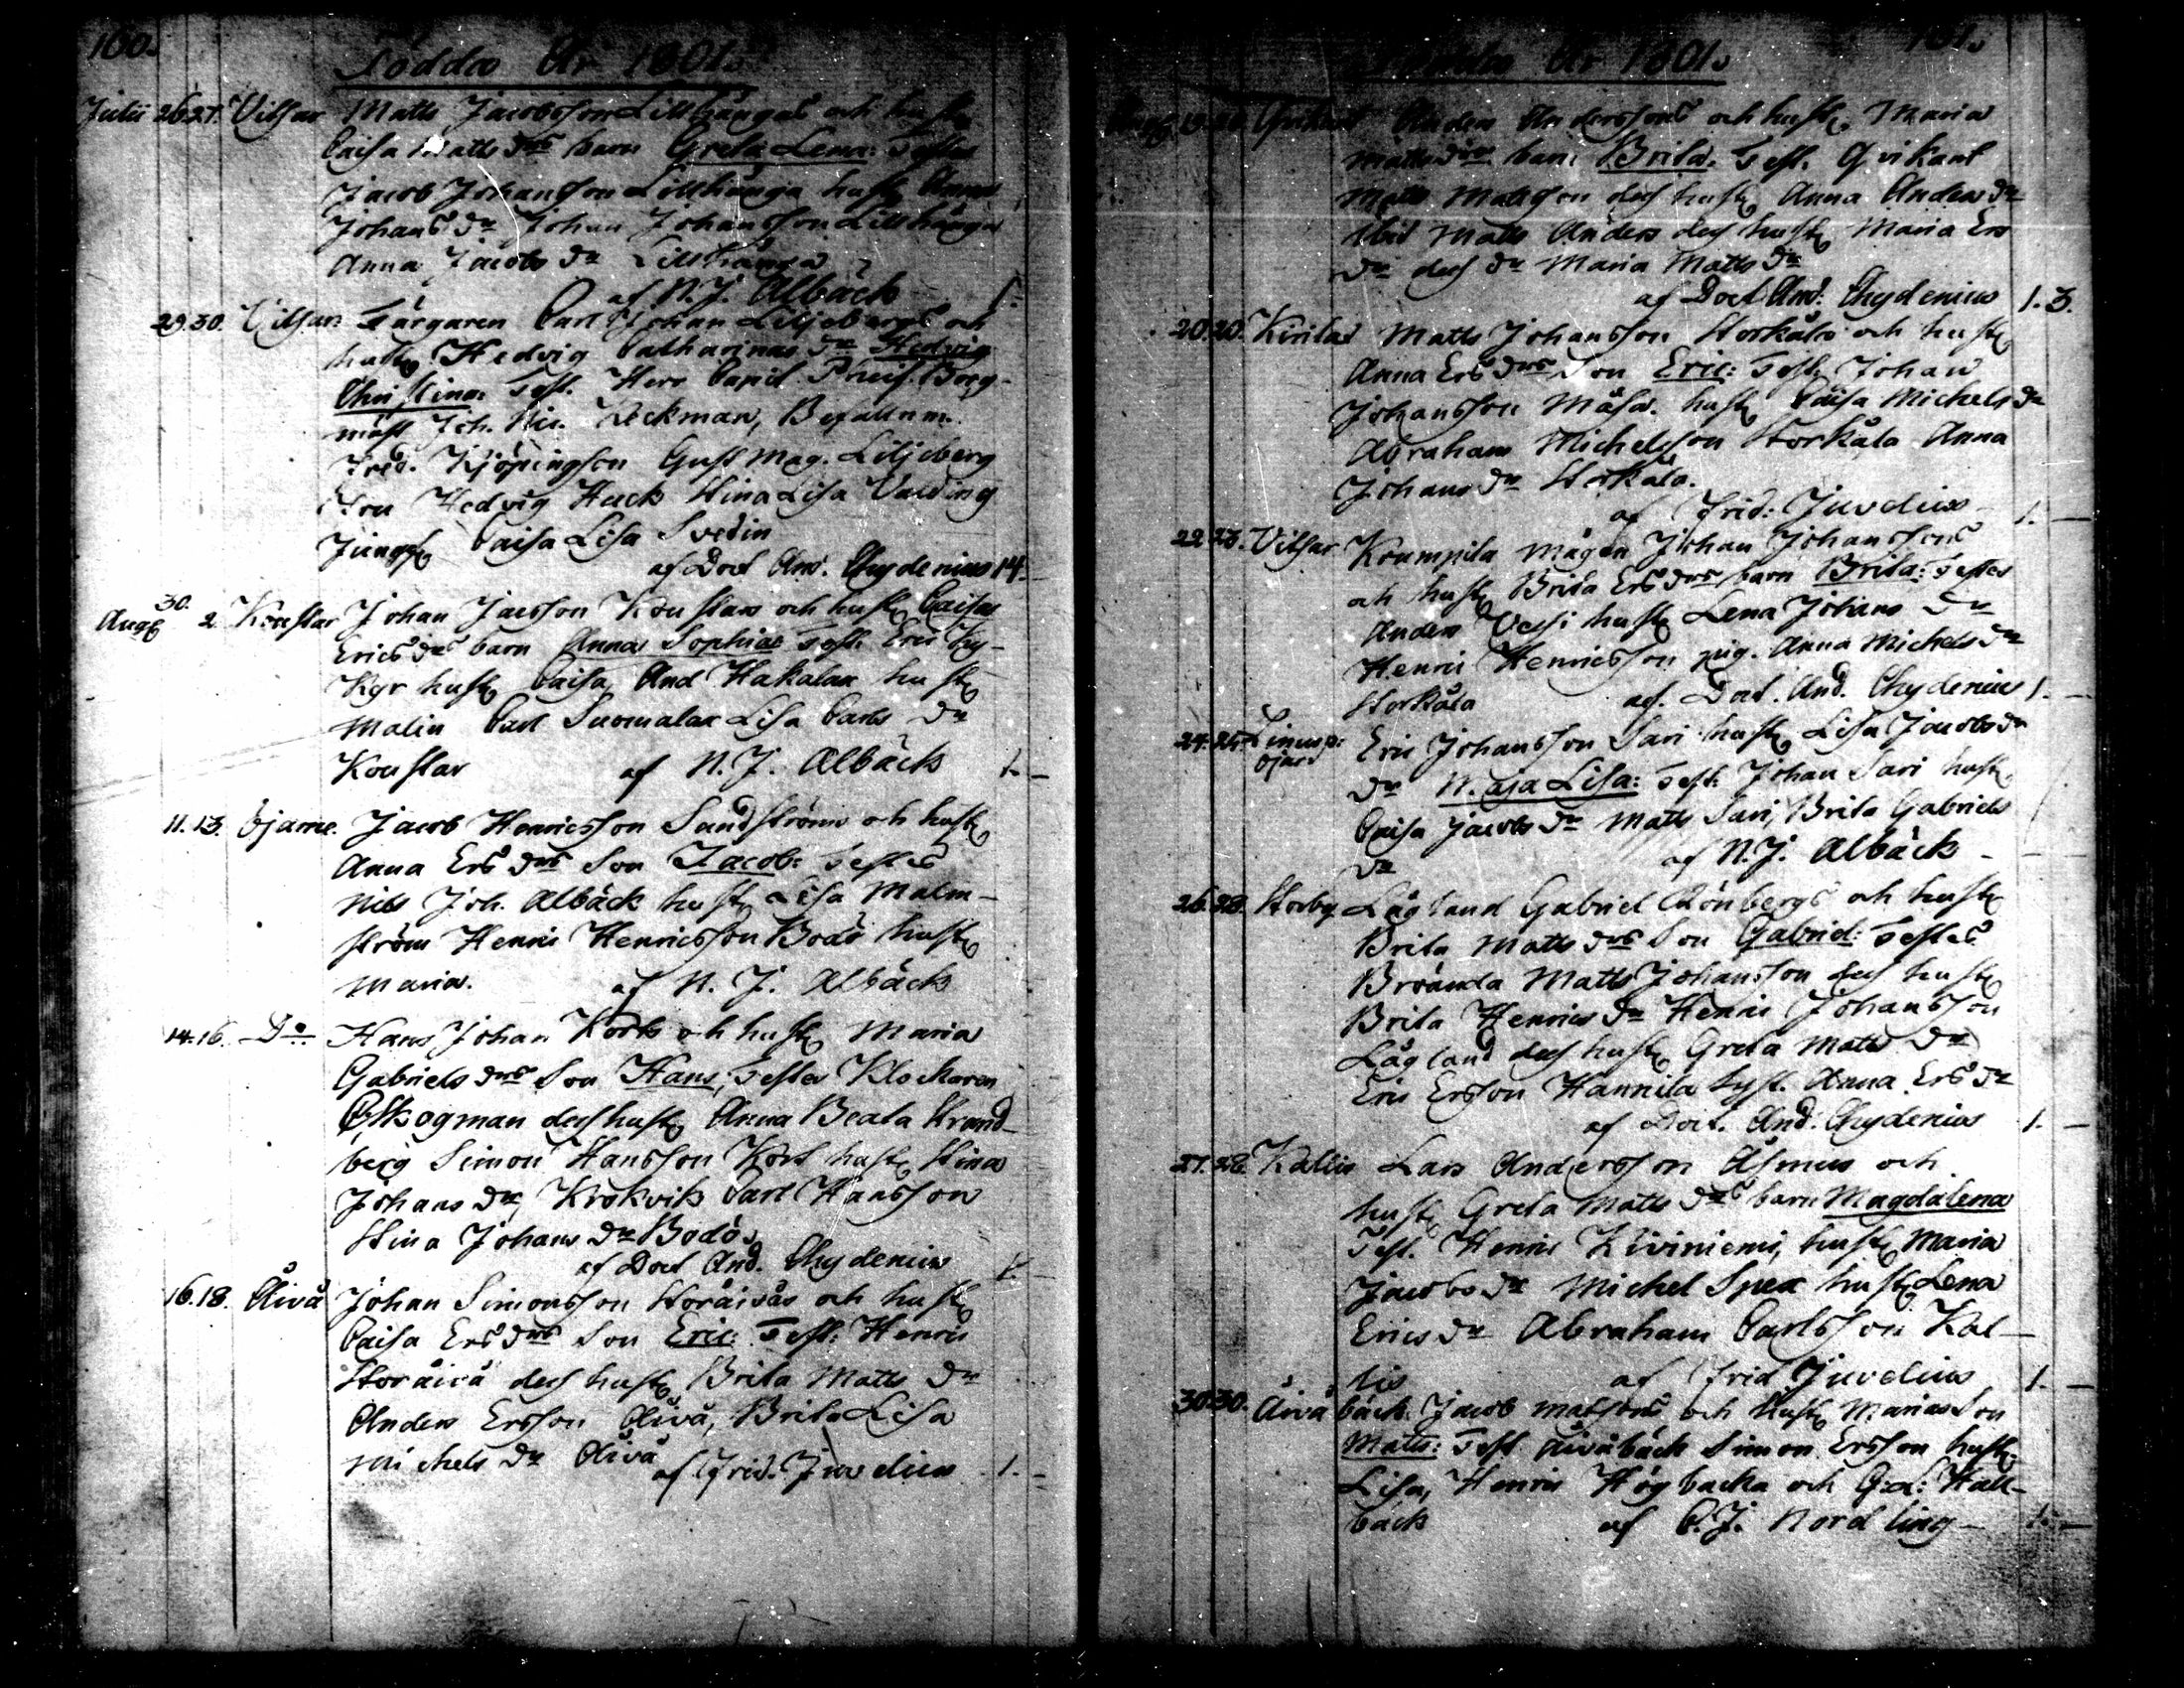 160.
Födda År 1801.
Julii 26. 27. Vitsar Matts Jacobsson Lillhångas och hust
Caisa Matts drs barn Greta Lena: Testes
Jacob Johansson Lillhånga hust Anna
Johans dr Johan Johansson Lillhånga
Anna Jacobs dr Lillhånga
af N. J. Albäck 1.
29. 30. Vitsar Färgaren Carl Johan Liljebergs och
hust Hedvig Catharinas dr Hedvig
Christina: Test. Herr Capit. Borg-
mäst Joh. Nic. Beckman, Befallnm.
Frid. Kjöpingson Gust Mag. Liljeberg
Fru Hedvig Hack Stina Lisa Valding
Jungf Caisa Lisa Svedin
af Doct And. Chydenius 14.
30.
Aug 2 Kouslar Johan Jacsson Kouslars och hust Caisas
Erics drs barn Anna Sophia: Test. Eric Ky-
Kyr hust Caisa, And Hakalax hust
Malin Carl Suomalax Lisa Carls dr
Kouslar af N. J. Albäck 1. -
11. 13. Öjarne. Jacob Henricsson Sundströms och hust
Anna Ers drs Son Jacob: Testes
Nils Joh. Albäck hust Lisa Malm-
ström Henric Henricsson Bodö hust
Maria. af N. J. Albäck
14. 16. Do. Hans Johan Korts och hust Maria
Gabriels drs Son Hans, Testes Klockaren
Skogman des hust Anna Beata Strand-
berg Simon Hansson Kort hust Stina
Johans dr, Krokvik Carl Hansson
Stina Johans dr Bodö
af Doct And. Chydenius 1. -
16. 18. Åivå Johan Simonsson Storåivås och hust
Caisa Ers drs Son Eric: Test: Henric
Storåivå des hust Brita Matts dr
Anders Ersson Åivå, Brita Lisa
Michels dr Åivå af Frid. Juvelius 1. -
161.
Födda År 1801.
Aug. 19. 20. Qvikant Anders Anderssons och hust Maria
Matts drs barn Brita. Test. Qvikant
Matts Mattsson des hust Anna Anders dr
Ibid Matts Anders des hust Maria Ers
dr des dr Maria Matts dr
af Doct And: Chydenius 1. 3.
20. 20. Kirilax Matts Johansson Storkåla och hust
Anna Ers drs, Son Eric: Test: Johan
Johansson Måsa. hust Caisa Michels dr
Abraham Michelsson Storkåla Anna
Johans dr Storkåla.
af Frid: Juvelius 1. -
22. 23. Vitsar Krumpila mågen Johan Johanssons
och hust Brita Ers drs, barn Brita: Testes
Anders Vessi hust Lena Johans dr
Henric Henricsson pig. Anna Michels dr
Storkåla af. Doct. And. Chydenius 1. -
24. 25. Linusp: öjard Eric Johansson Sari hust Lisa Jacobs dr
dr Maja Lisa: Test: Johan Sari hust
Caisa Jacobs dr Matts Sari, Brita Gabriels
dr af N. J. Albäck -
26. 28. Storby Lågland Gabriel Rönbergs och hust
Brita Matts drs Son Gabriel: Testes
Brrända Matts Johansson des hust
Brita Henrics dr Henric Johansson
Lågland des hust Greta Matts dr
Eric Ersson Hannila hust. Anna Ers dr
af Doct. And: Chydenius 1. -
27. 28. Kallis Lars Andersson Åsmus och
hust Greta Matts drs barn Magdalena
Test. Henric Kiviniemi, hust Maria
Jacobs dr Michel Spex hust Lena
Erics dr Abraham Carlsson Kal-
lis af Frid Juvelius 1. -
30. 30. Åivå bäck. Jacob Matssons och Hust Marias Son
Matts: Test Åivåbäck Simon Ersson hust
Lisa, Henric Högbacka och G: L: Häll-
bäck af C. J. Nordling - 1. -